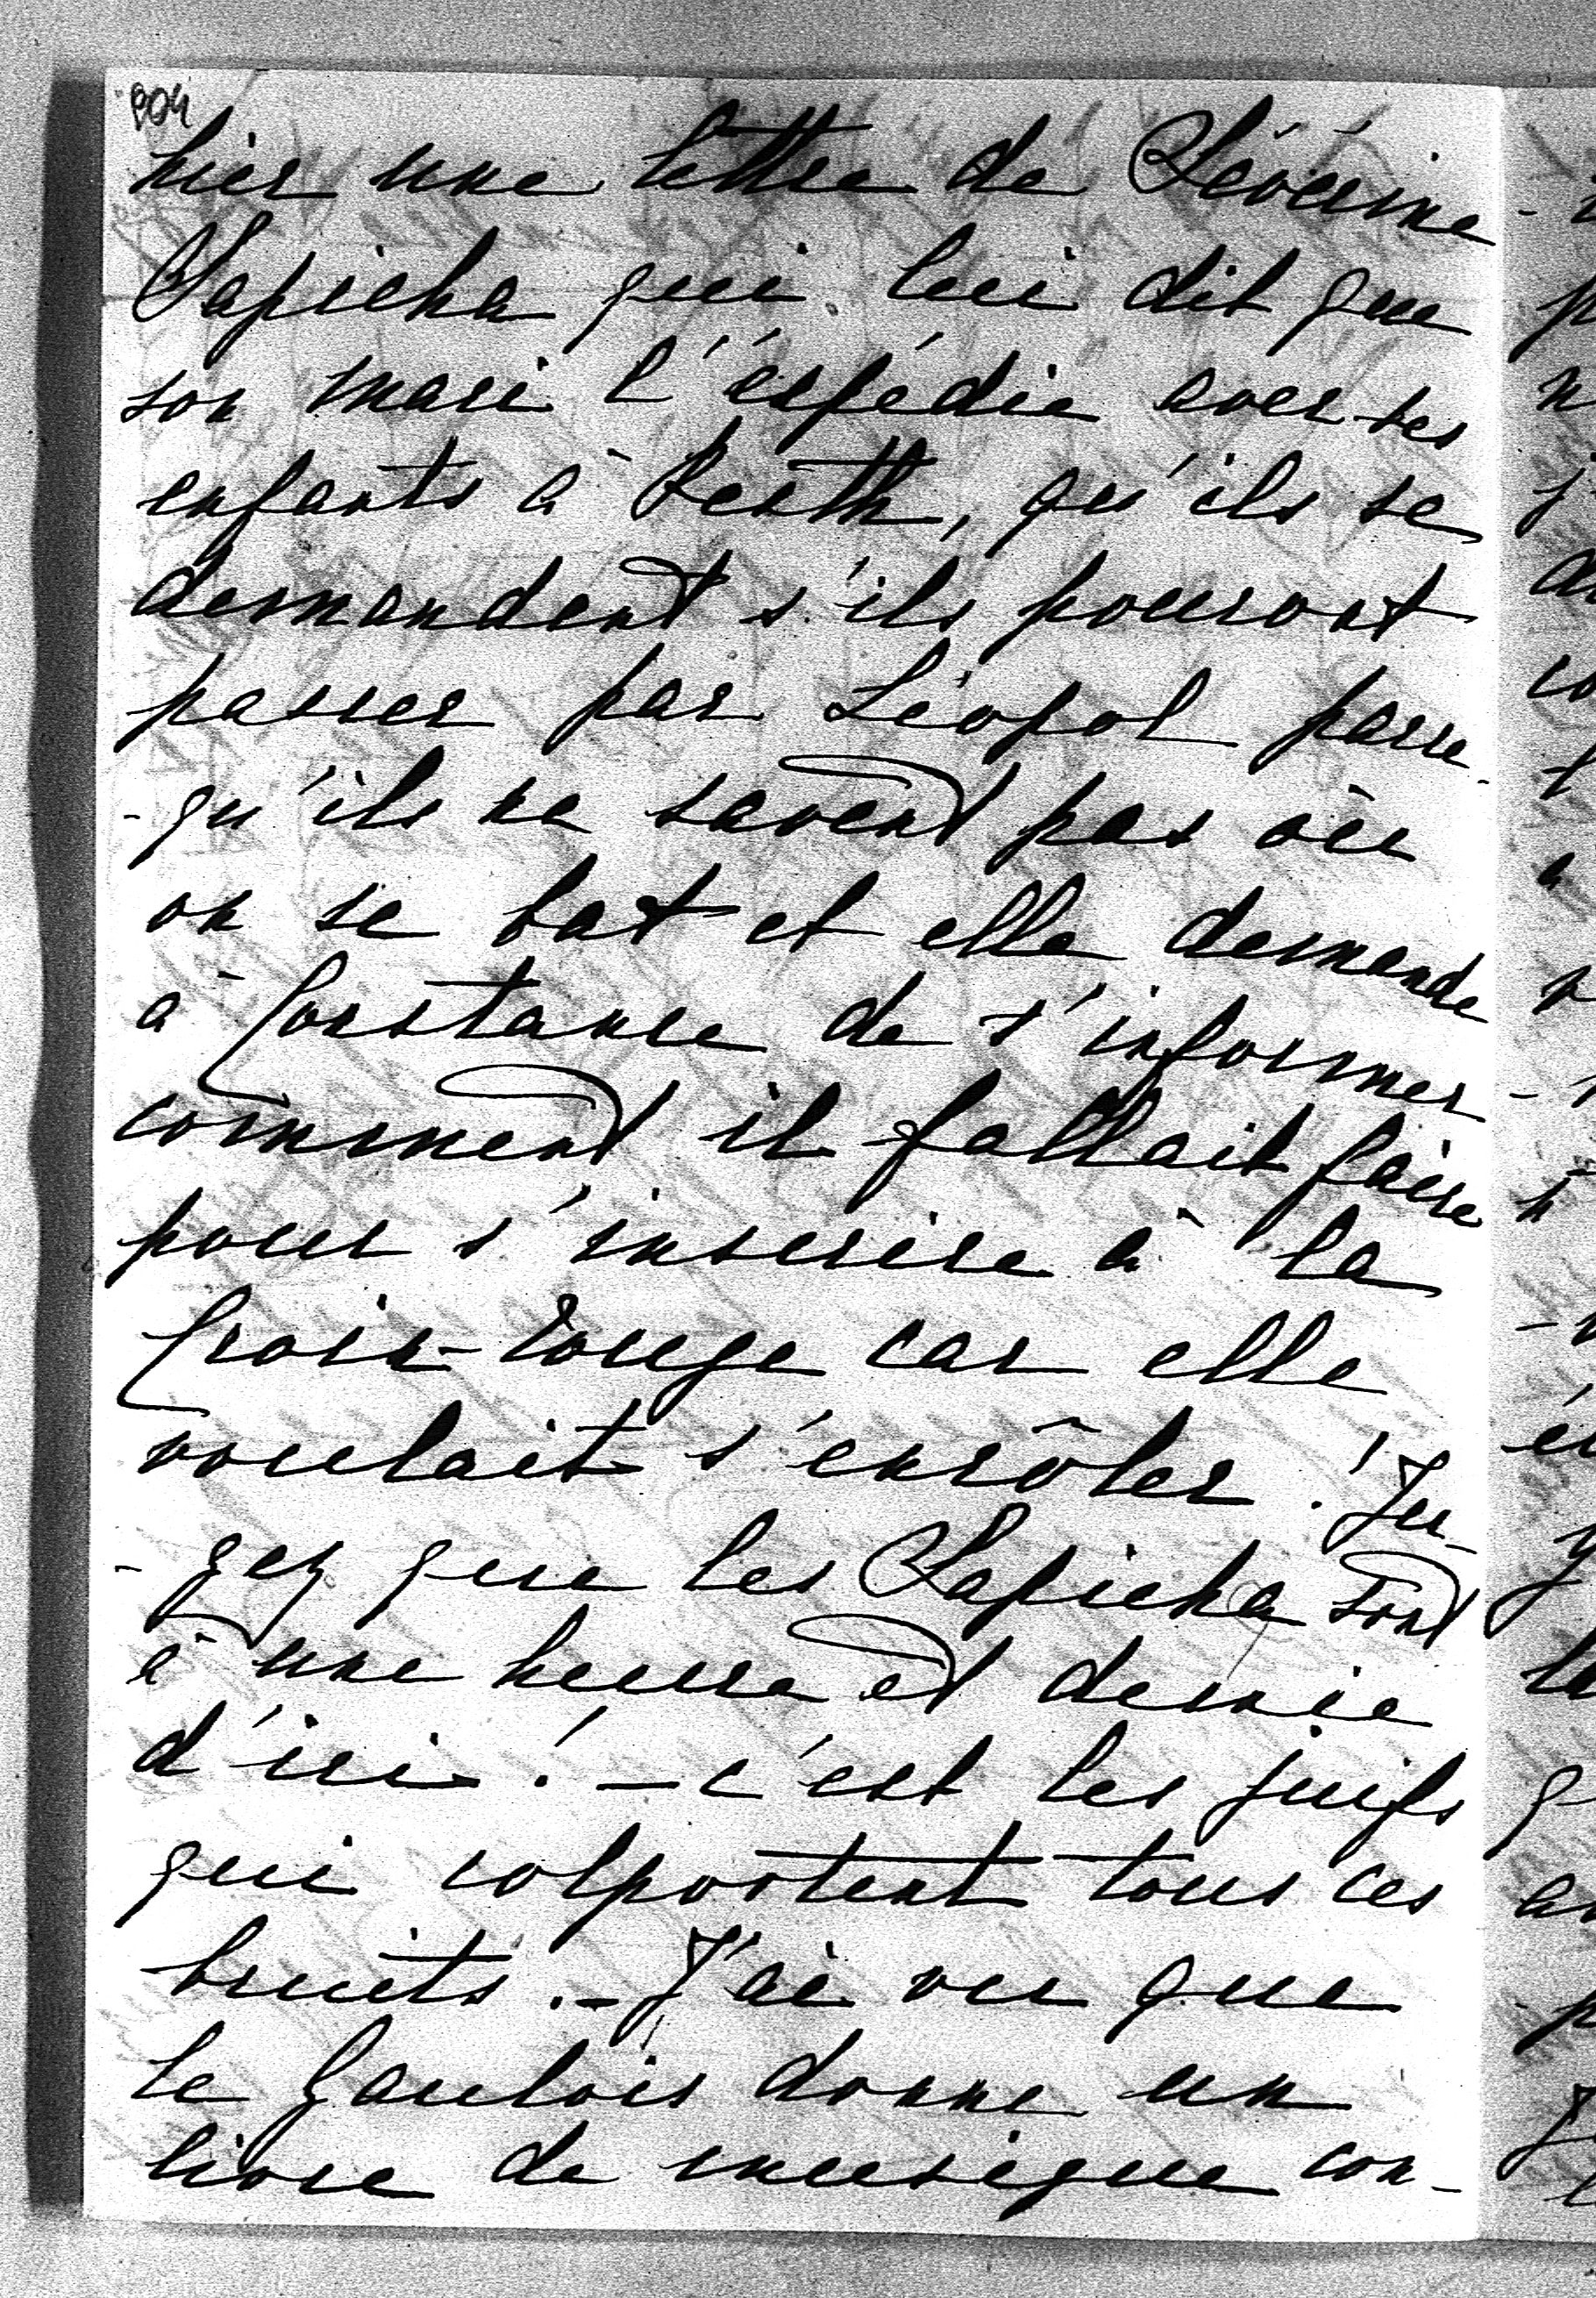 904
hier une lettre de Séverine
Sapieha qui lui dit que
son mari l'éxpédie avec ses
enfants à Pesth, qu'ils se
demandent s'ils pouront
passer par Léopol parce-
-qu'ils ne savent pas où
on se bat et elle demande
à Constance de s'informer
comment il fallait faire
pour s'inscrire à la
Croix-rouge car elle
voulait s'enrôler! Ju-
-gez que les Sapieha sont
à une heure et demie
d'ici! - c'est les juifs
qui colportent tous ces
bruits. - J'ai vu que
le Gaulois donne un
livre de musique con-